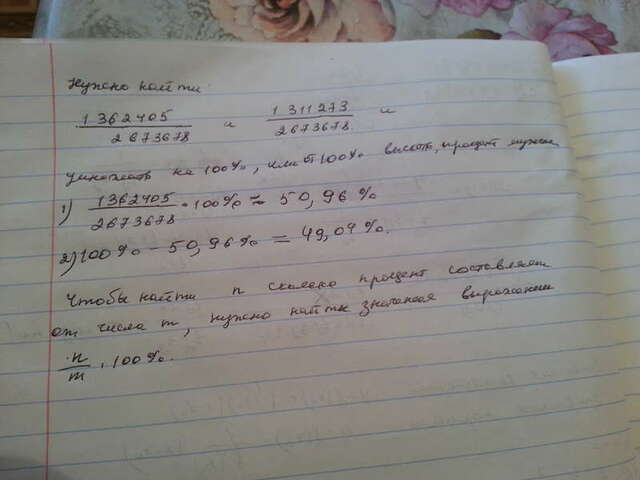 Нужно найти:
1362405/2673678 и 1311273/2673678 и
умножать на 100%, или от 100% вычесть, процент мужчин
1) 1362405/2673678 · 100% ≈ 50,96%
2) 100% - 50,96% = 49,04%.
Чтобы найти n сколько процент составляет
от числа m, нужно найти значения выражении
n/m · 100%.